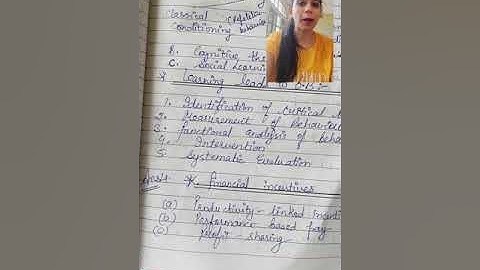 Classical
Conditioning
B. Cognitive the
C. Social Learni
* Learning lead
1. Identification of Critical
2. Measurement of Behaviou
3. functional analysis of beha
4. Intervention
5. Systematic Evaluation
*. financial incentives
(a) Productivity-linked incenti
(b) Performance based pay
(c) profit-sharing